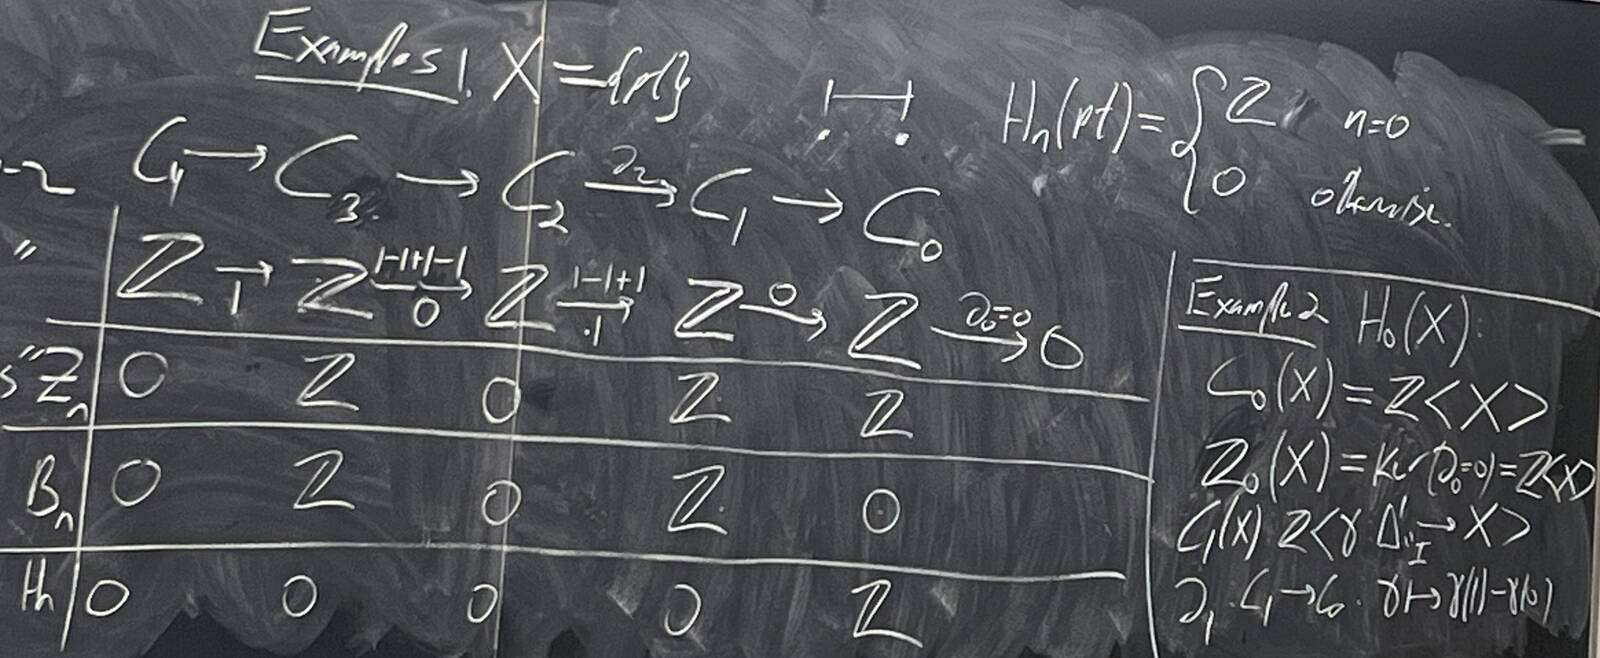 Examples 1. X = {pt}
H_n(pt) = { Z n=0
0 otherwise.
C_4 → C_3 → C_2 →^{∂_2} C_1 → C_0
Z →_{1} Z →^{1-1+1-1}_{0} Z →^{1-1+1}_{1} Z →^{0} Z →^{∂_0=0} 0
Z_n 0 Z 0 Z Z
B_n 0 Z 0 Z 0
H_n 0 0 0 0 Z
Example 2 H_0(X):
C_0(X) = Z<X>
Z_0(X) = Ker(∂_0=0) = Z<X>
C_1(X) Z<γ Δ^1 → X>
I
∂_1 : C_1 → C_0 . γ ↦ γ(1) - γ(0)